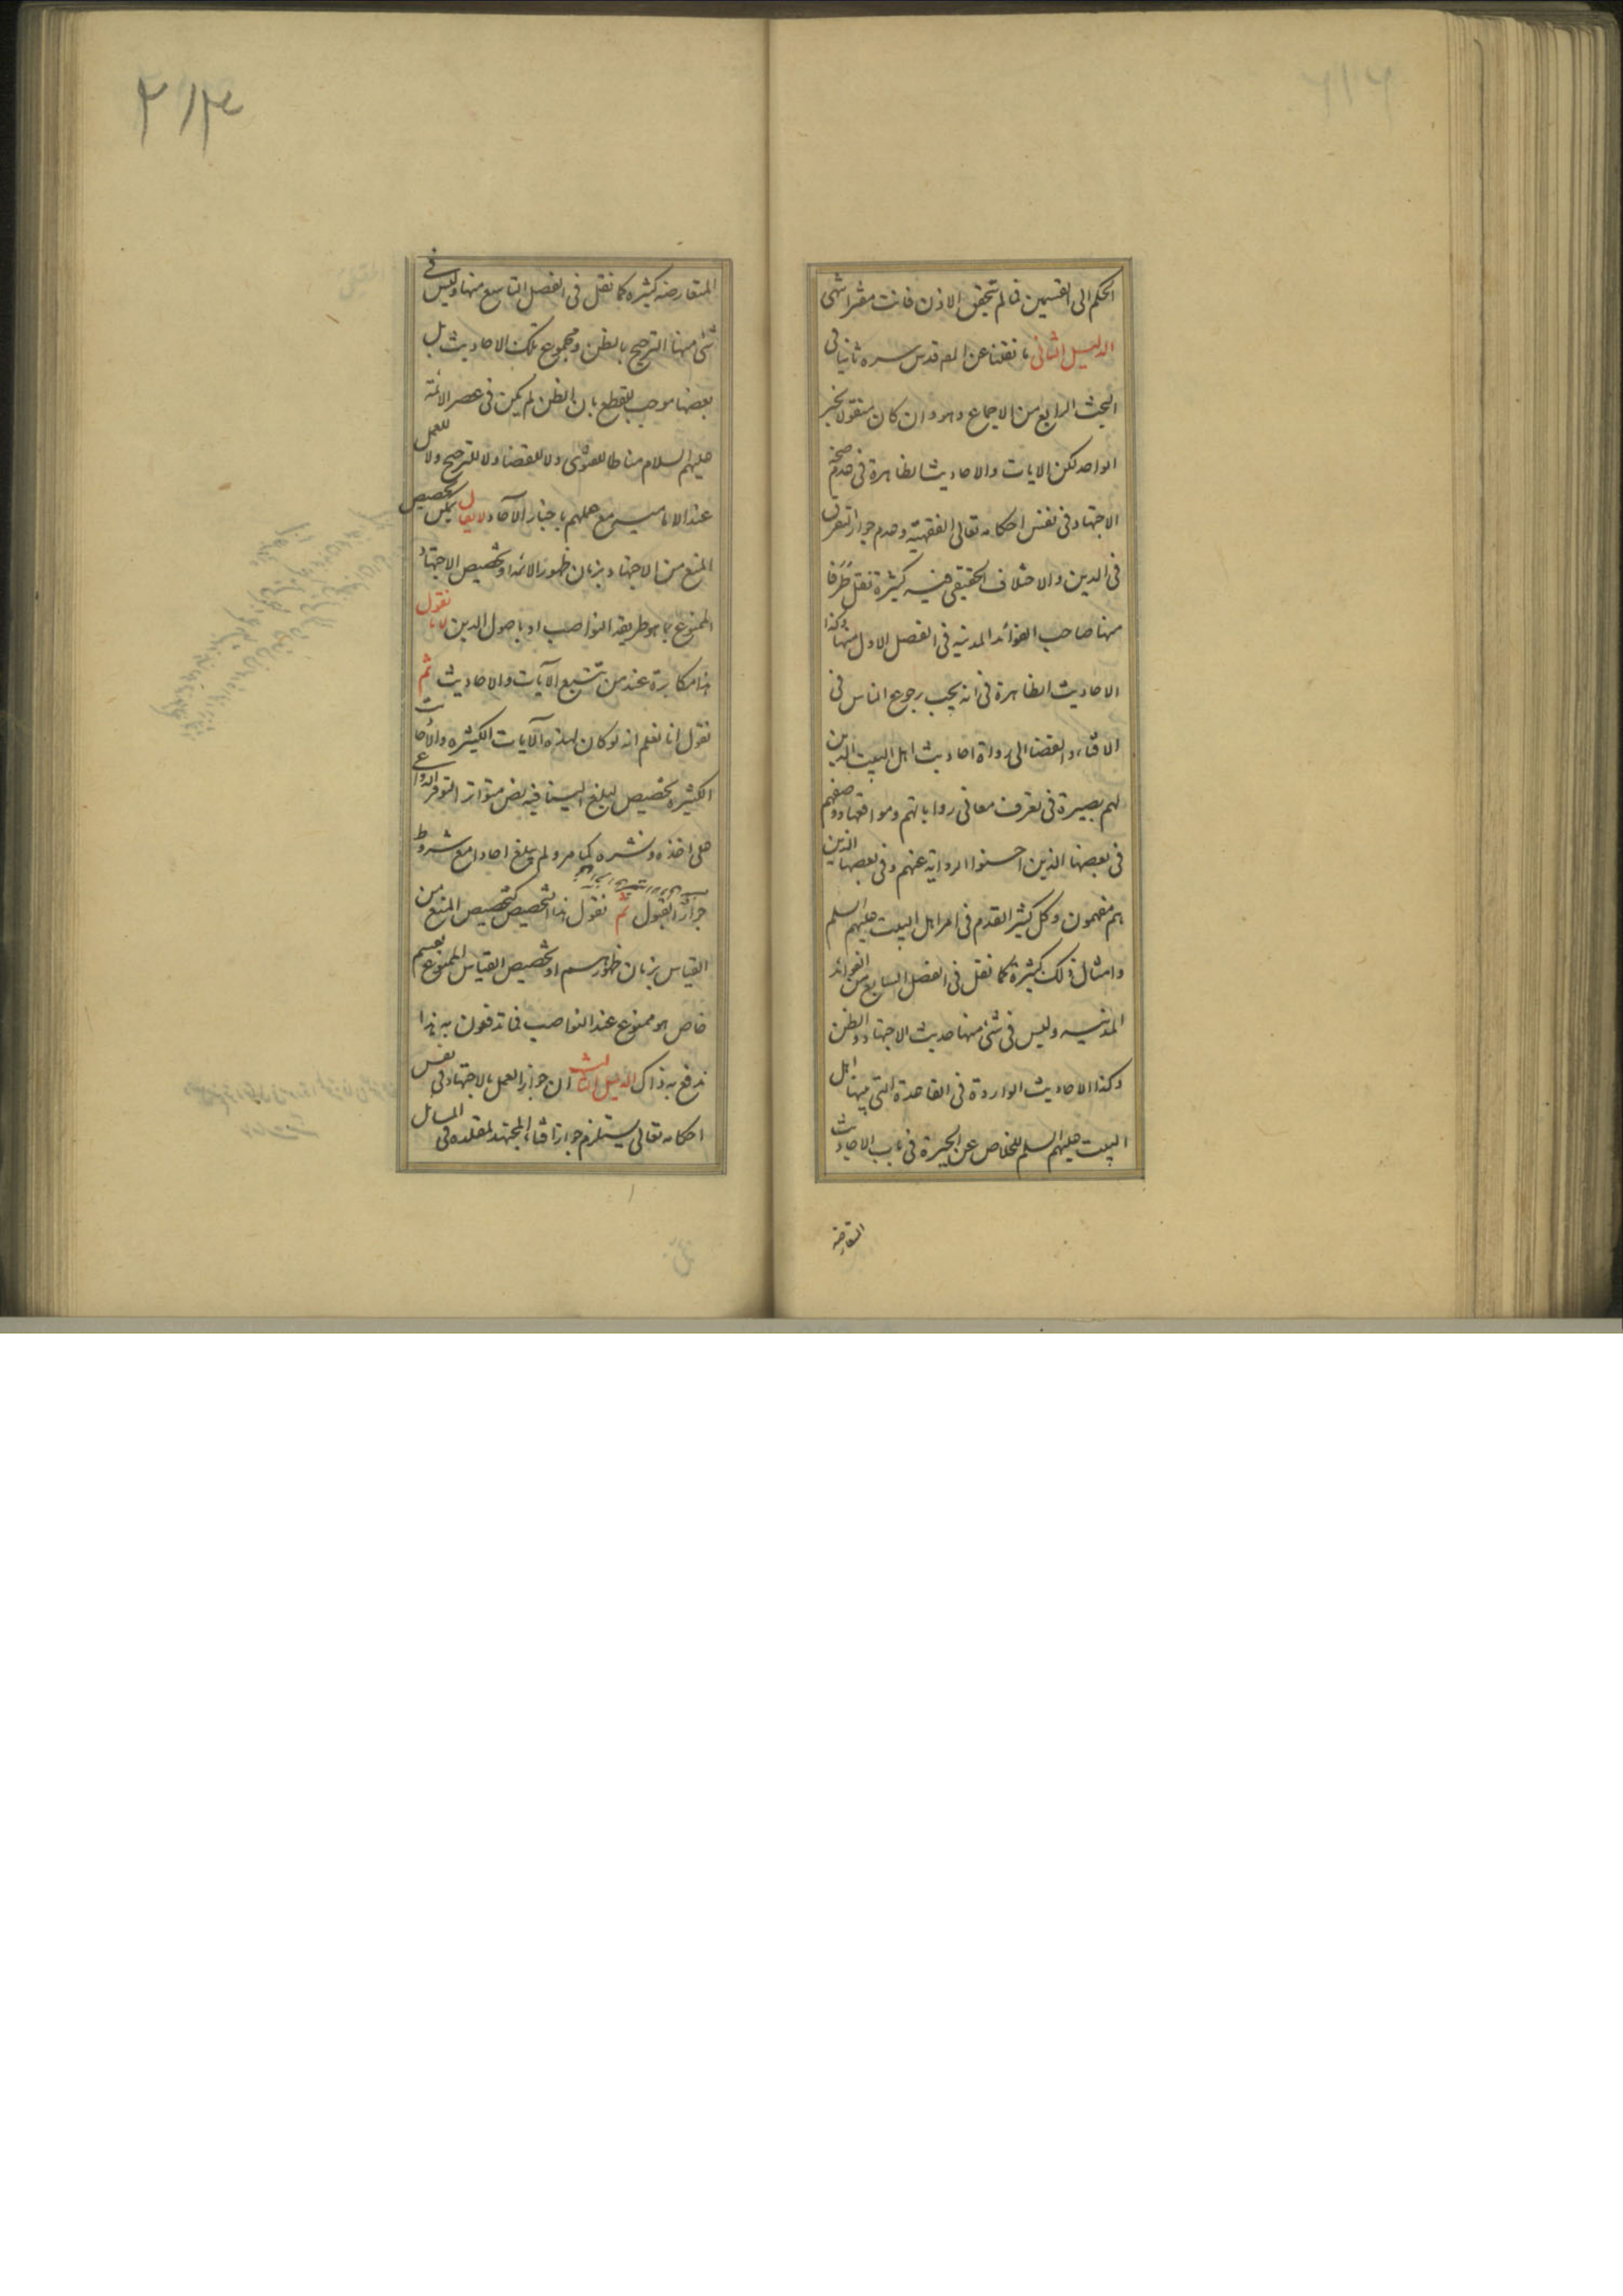 الحكم الى القسمين فما لم يتحقق الاذن فانت مفتر انتهى
الدليل الثانى ما نقلنا عن المص قدس سره ثانيا فى
البحث الرابع من الاجماع وهو وان كان منقولا بخبر
الواحد لكن الايات والاحاديث الظاهرة فى عدم صحة
الاجتهاد فى نفس احكامه تعالى الفقهية وعدم جواز التفرق
فى الدين والاختلاف الحقيقى فيه كثيرة نقل طَرَفا
منها صاحب الفوائد المدنيه فى الفصل الاول منها وكذا
الاحاديث الظاهرة فى انه يجب رجوع الناس فى
الافتاء والقضا الى رواة احاديث اهل البيت الذين
لهم بصيرة فى تعرف معانى رواياتهم ومواقعها ووصفهم
فى بعضها الذين احسنوا الرواية عنهم وفى بعضها الذين
هم مفهمون وكل كثير القدم فى امر اهل البيت عليهم السلم
وامثال ذلك كثيرة كما نقل فى الفصل السابع من الفوائد
المدنيه وليس فى شئ منها حديث الاجتهاد والظن
وكذا الاحاديث الواردة فى القاعدة التى بينها اهل
البيت عليهم السلم للخلاص عن الحيرة فى باب الاحاديث
المتعارضة
المتعارضه كثيره كما نقل فى الفصل التاسع منها وليس فى
شئ منها الترجيح بالظن ومجموع تلك الاحاديث بل
بعضها موجب للقطع بان الظن لم يكن فى عصر الائمة
عليهم السلام مناطا للفتوى ولا للقضا ولا للترجيح ولا للعمل
عند الاماميه مع عملهم باخبار الآحاد لا يقال يمكن تخصيص
المنع من الاجتهاد بزمان ظهور الائمه او تخصيص الاجتهاد
الممنوع بما هو طريقة النواصب او باصول الدين لانا نقول
هذا مكابرة عند من تتبع الآيات والاحاديث ثم
نقول انا نعلم انه لو كان لهذه الآيات الكثيره والاحاديث
الكثيره تخصيص لبلغ الينا فيه نص متواتر لتوفر الدواعى
على اخذه ونشره كما مر ولم يبلغ احادا مع شروط
جواز القبول ثم نقول هذا التخصيص كتخصيص المنع من
القياس بزمان ظهورهم او تخصيص القياس الممنوع بقسم
خاص هو ممنوع عند النواصب فما تدفعون به هذا
ندفع به ذاك الدليل الثالث ان جواز العمل بالاجتهاد فى نفس
احكامه تعالى يستلزم جواز افتاء المجتهد لمقلده فى المسائل